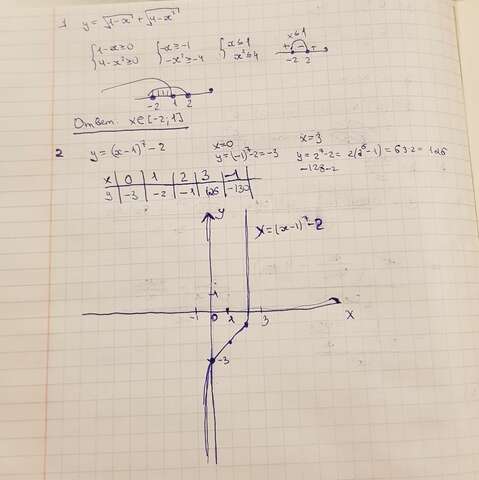 1 y = √1-x + √4-x²
{1-x≥0 4-x²≥0 {-x≥-1 -x²≥-4 {x≤1 x²≤4 x≤1 + - + -2 2
-2 1 2
Ответ: x∈[-2;1]
2 y = (x-1)⁷-2 x=0 x=3
y=(-1)⁷-2=-3 y=2⁷-2= 2(2⁶-1)=63·2=126
-128-2
x 0 1 2 3 -1
y -3 -2 -1 126 -130
y
X=(x-1)⁷-2
1
-1 0 1 3 X
-3